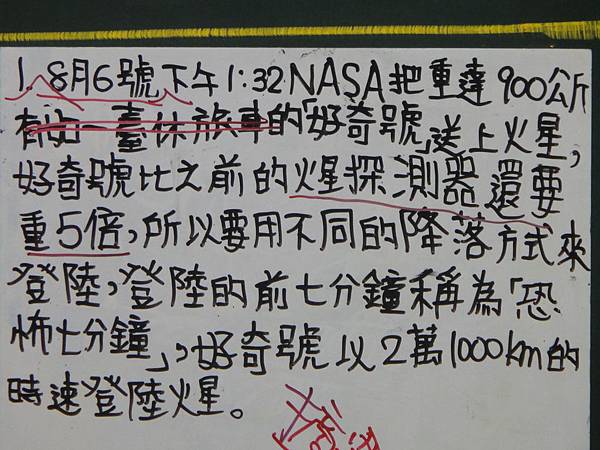 1. 8月6號下午1:32 NASA把重達900公斤
有如一臺休旅車的「好奇號」送上火星,
好奇號比之前的火星探測器還要
重5倍,所以要用不同的降落方式來
登陸,登陸的前七分鐘稱為「恐
怖七分鐘」,好奇號以2萬1000km的
時速登陸火星。